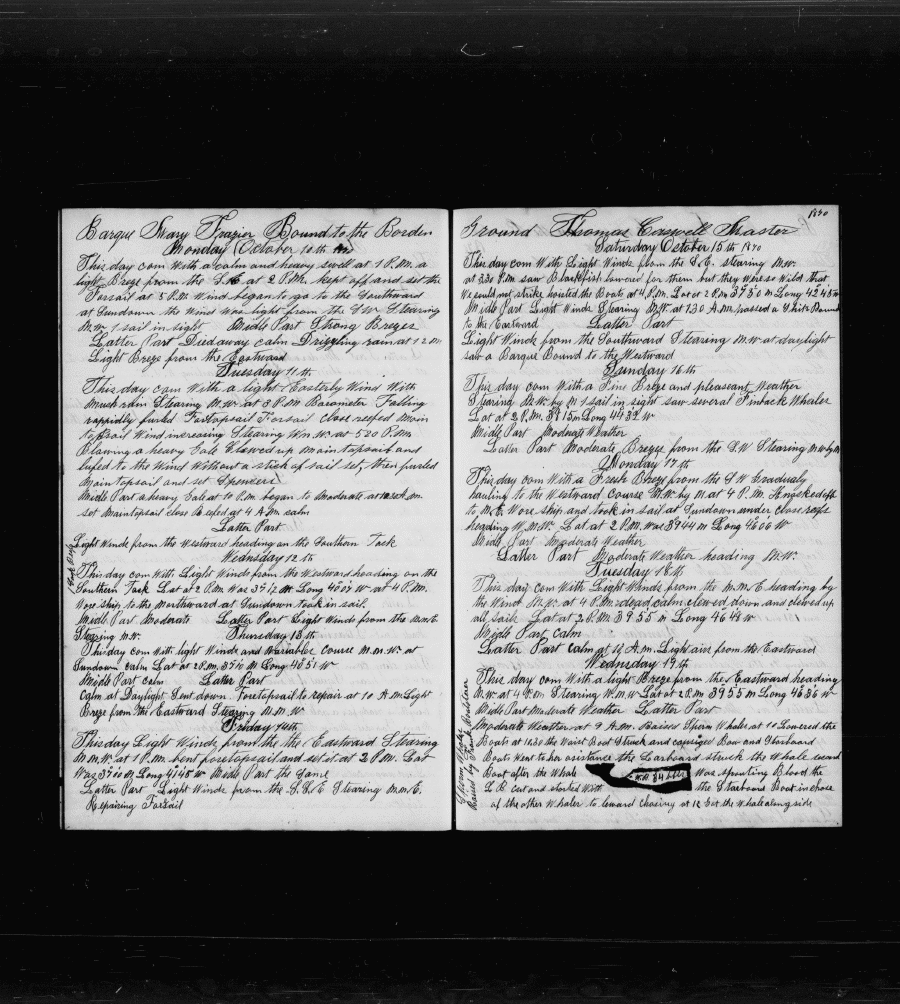 Barque Mary Frazier Bound to the Borden
Monday October 10th
This day com With a calm and heavy swell at 1 P.M. a
light Breze from the S.E. at 2 P.M. kept off and set the
Forsail at 5 P.M. Wind began to go to the Southward
at Sundown the Wind was light from the S.W. Stearing
N.W. 1 sail in sight Middle Part Strong Brezes
Latter Part Diedaway calm Drizzling rain at 12 M
Light Breze from the Eastward
Tuesday 11th
This day com With a light Easterly Wind With
much rain Stearing N.W. at 3 P.M. Barometer Falling
rappidly furled Foretopsail Forsail close reefed Main
topsail Wind increasing Stearing at 5 20 P.M.
Blowing a heavy Gale Clewed up Maintopsail and
lufed to the Wind Without a stick of sail set, then furled
Maintopsail and set Spencer
Middle Part a heavy Gale at 10 P.M. began to Moderate at A.M.
set Maintopsail close Reefed at 4 A.M. calm
Latter Part
Light Winds from the Westward heading on the Southern Tack
Wednsday 12th
This day com With Light Winds from the Westward heading on the
Southern Tack Lat at 2 P.M. Was 37 12 N Long 40 05 W at 4 P.M.
Wore Ship to the Northward at Sundown took in sail.
Middle Part Moderate Latter Part Light Winds from the N.N.E.
Stearing N.W. Thursday 13th
This day com With light Winds and Variables course N.N.W. at
Sundown calm Lat at 2 P.M. 37 11 N Long 40 51 W
Middle Part calm Latter Part
calm at Daylight Sent down Foretopsail to repair at 10 A.M. Light
Breze from the Eastward Stearing N.N.W.
Friday 14th
This day Light Winds from the the Eastward Stearing
N.N.W. at 1 P.M. bent foretopsail and set it at 2 P.M. Lat
Was 37 00 N Long 41 48 W Middle Part the Same
Latter Part Light Winds from the S.S.E. Stearing N.N.E.
Repairing Forsail
1870
Ground Thomas Caswell Master
Saturday October 15th 1870
This day com With Light Winds from the S.E. stearing N.W.
at 3.30 P.M. saw Blackfish lowered for them but they were so Wild that
We could not strike hoisted the Boats at 4 P.M. Lat at 2 P.M. 37 50 N Long 42 48 W
Middle Part Light Winds Stearing N.W. at 1.30 A.M. passed a Ship Bound
to the Eastward Latter Part
Light Winds from the Southward Stearing N.W. at daylight
saw a Barque Bound to the Westward
Sunday 16th
This day com With a Fine Breze and pleasant Weather
Stearing N.W. by N. 1 sail in sight saw several Finback Whales
Lat at 2 P.M. 39 15 N Long 44 32 W
Middle Part Moderate Weather
Latter Part Moderate Brezes from the S.W. Stearing N.W. by N
Monday 17th
This day com With a Fresh Breze from the S.W. Gradualy
hauling to the Westward course N.W. by N. at 4 P.M. knocked off
to N.E. Wore ship and took in sail at Sundown under close reefs
heading W.N.W. Lat at 2 P.M. Was 39 44 N Long 46 06 W
Middle Part Moderate Weather
Latter Part Moderate Weather heading N.W.
Tuesday 18th
This day com With Light Winds from the N.N.E. heading by
the Wind N.W. at 4 P.M. dead calm clewed down and clewed up
all sails Lat at 2 P.M. 39 55 N Long 46 48 W
Middle Part calm
Latter Part calm at 10 A.M. Light air from the Eastward
Wednsday 19th
This day com With a light Breze from the Eastward heading
N.W. at 4 P.M. Stearing W.N.W. Lat at 2 P.M. 39 55 N Long 46 36 W
Middle Part Moderate Weather Latter Part
Moderate Weather at 9 A.M. Raised Sperm Whales at 10 Lowered the
Boats at 10.30 the Waist Boat Struck and capsized Bow and Starboard
Boats Went to her asistance the Larboard struck the Whale
Boat after the Whale 84 bbls Was spouting Blood the
L B cut and started With the Starboard Boat in chase
of the other Whales to leward chasing at 12 Got the Whale along side
Sperm Whales
Raised by Frank